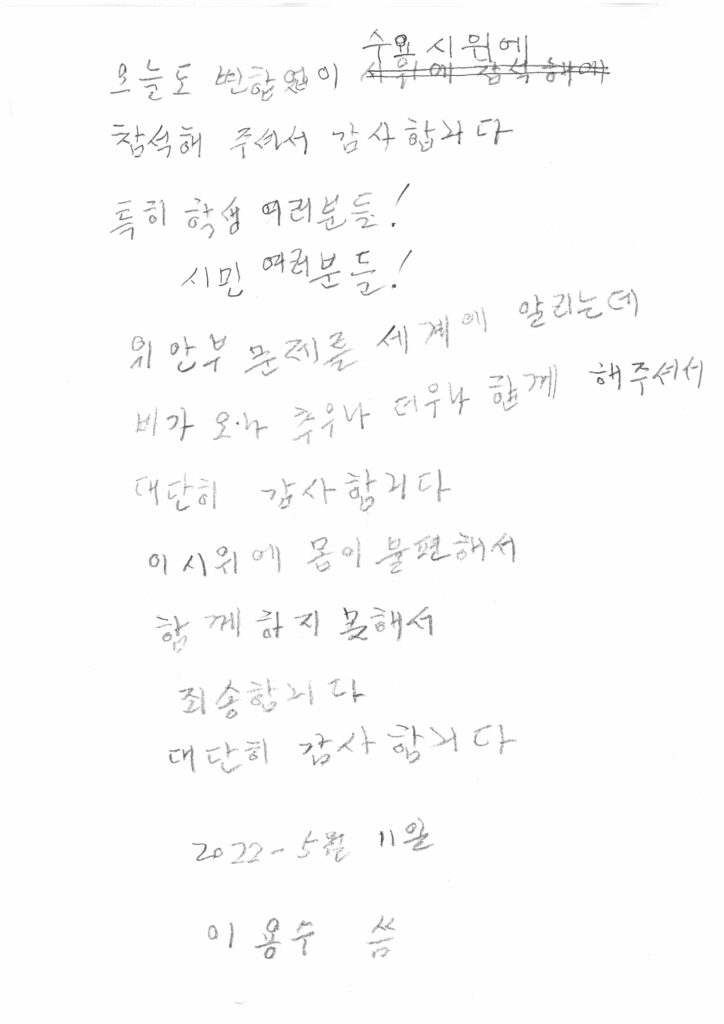 수욜 시위에
오늘도 변합없이 시위에 참석해에
참석해 주셔서 감사합니다
특히 학생 여러분들!
시민 여러분들!
위안부 문제를 세계에 알리는데
비가 오나 추우나 더우나 함께 해주셔서
대단히 감사합니다
이 시위에 몸이 불편해서
함께하지 못해서
죄송합니다
대단히 감사합니다
2022-5월 11일
이용수 씀